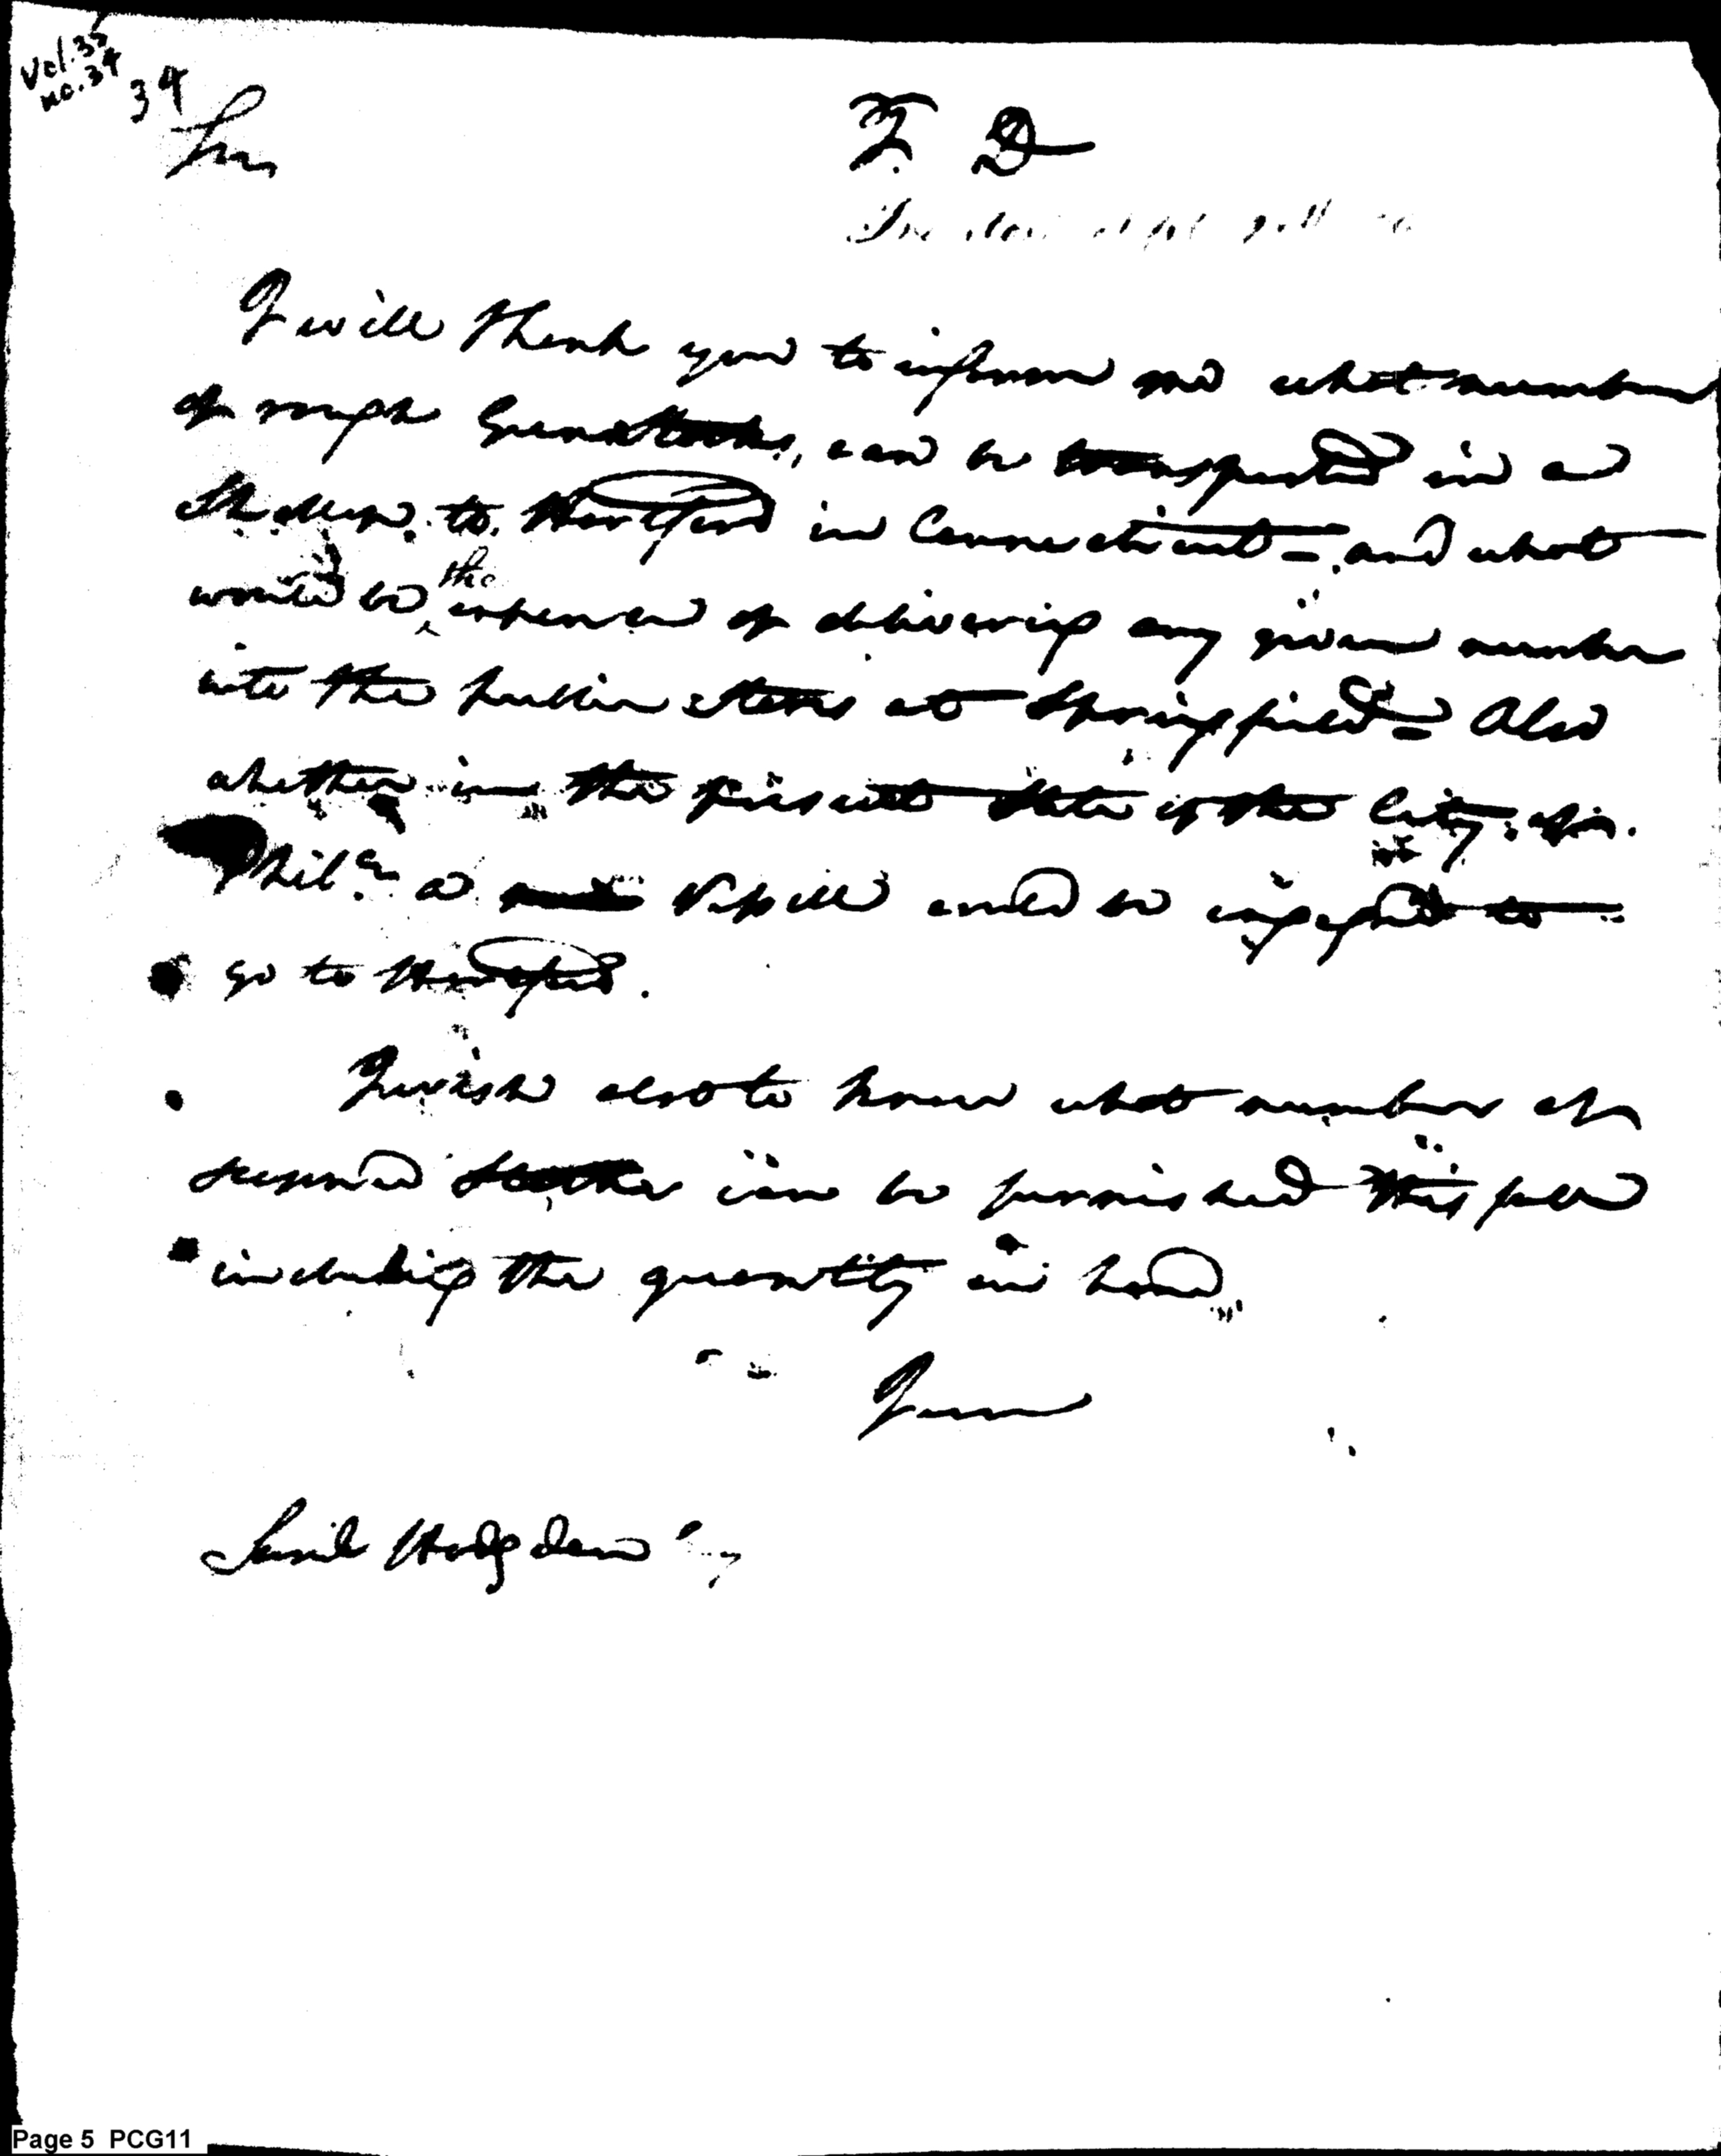 Vol. 35
no. 34
34
Sir,
T. D
I will thank you to inform me what number
of rough Gunstocks, can be transported in a
to Hartford in Connecticut =. and what
would be the expence of delivering any given number
into the public stores at Springfield = Also
whether in the present state of the City of
Phila. a Vessell could be engaged to
go to Hartford.
I wish also to know what number of
can be furnished this fall
including the quantity on hand
I am
Saml Hodgdon Esq
Page 5 PCG11